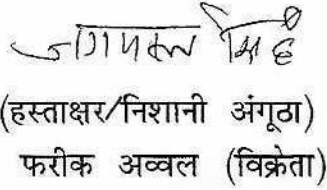 जगपाल सिंह
(हस्ताक्षर/निशानी अंगूठा)
फरीक अव्वल (विक्रेता)